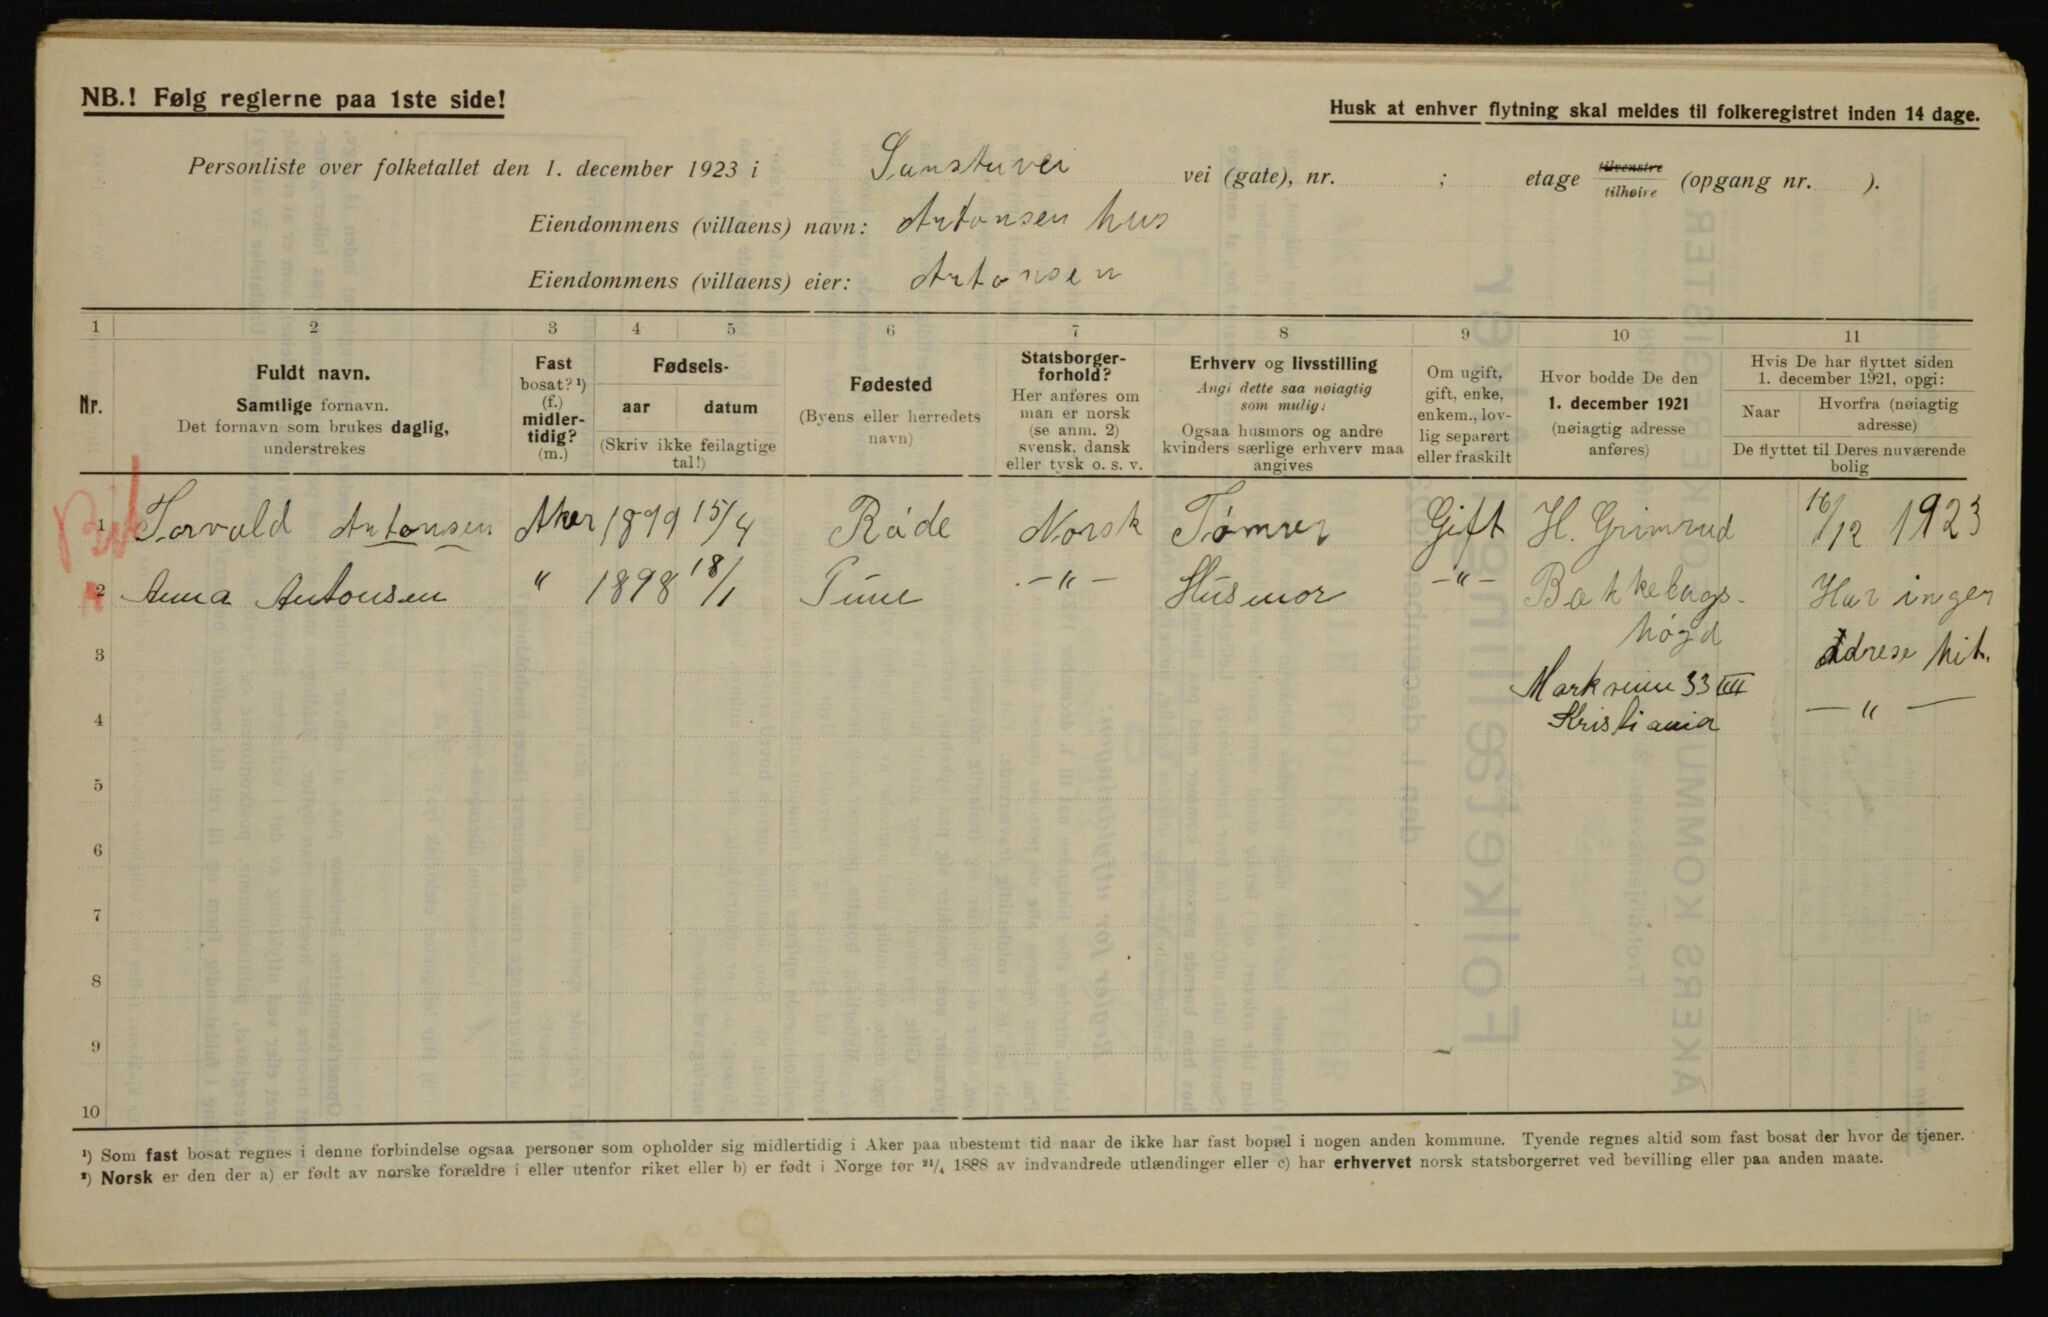 NB.! Følg reglerne paa 1ste side!
Husk at enhver flytning skal meldes til folkeregistret inden 14 dage.
Personliste over folketallet den 1. december 1923 i Sanstuvei vei (gate), nr. ; etage tilvenstre tilhøire (opgang nr. ).
Eiendommens (villaens) navn: Antonsen hus
Eiendommens (villaens) eier: Antonsen
1 2 3 4 5 6 7 8 9 10 11
Nr.
Fuldt navn.
Samtlige fornavn.
Det fornavn som brukes daglig,
understrekes
Fast
bosat? ¹)
(f.)
midler-
tidig?
(m.)
Fødsels-
aar datum
(Skriv ikke feilagtige
tal!)
Fødested
(Byens eller herredets
navn)
Statsborger-
forhold?
Her anføres om
man er norsk
(se anm. 2)
svensk, dansk
eller tysk o. s. v.
Erhverv og livsstilling
Angi dette saa nøiagtig
som mulig:
Ogsaa husmors og andre
kvinders særlige erhverv maa
angives
Om ugift,
gift, enke,
enkem., lov-
lig separert
eller fraskilt
Hvor bodde De den
1. december 1921
(nøiagtig adresse
anføres)
Hvis De har flyttet siden
1. december 1921, opgi:
Naar
Hvorfra (nøiagtig
adresse)
De flyttet til Deres nuværende
bolig
1 Torvald Antonsen Aker 1899 15/4 Råde Norsk Tømrer Gift H. Grimrud 16/12 1923
2 Anna Antonsen " 1898 18/1 Tune -"- Husmor -"- Bækkelags- Har ingen
høgd
3 Adrese hit.
Markveien 33 III
4 Kristiania -"-
5
6
7
8
9
10
¹) Som fast bosat regnes i denne forbindelse ogsaa personer som opholder sig midlertidig i Aker paa ubestemt tid naar de ikke har fast bopæl i nogen anden kommune. Tyende regnes altid som fast bosat der hvor de tjener.
²) Norsk er den der a) er født av norske forældre i eller utenfor riket eller b) er født i Norge før 21/4 1888 av indvandrede utlændinger eller c) har erhvervet norsk statsborgerret ved bevilling eller paa anden maate.